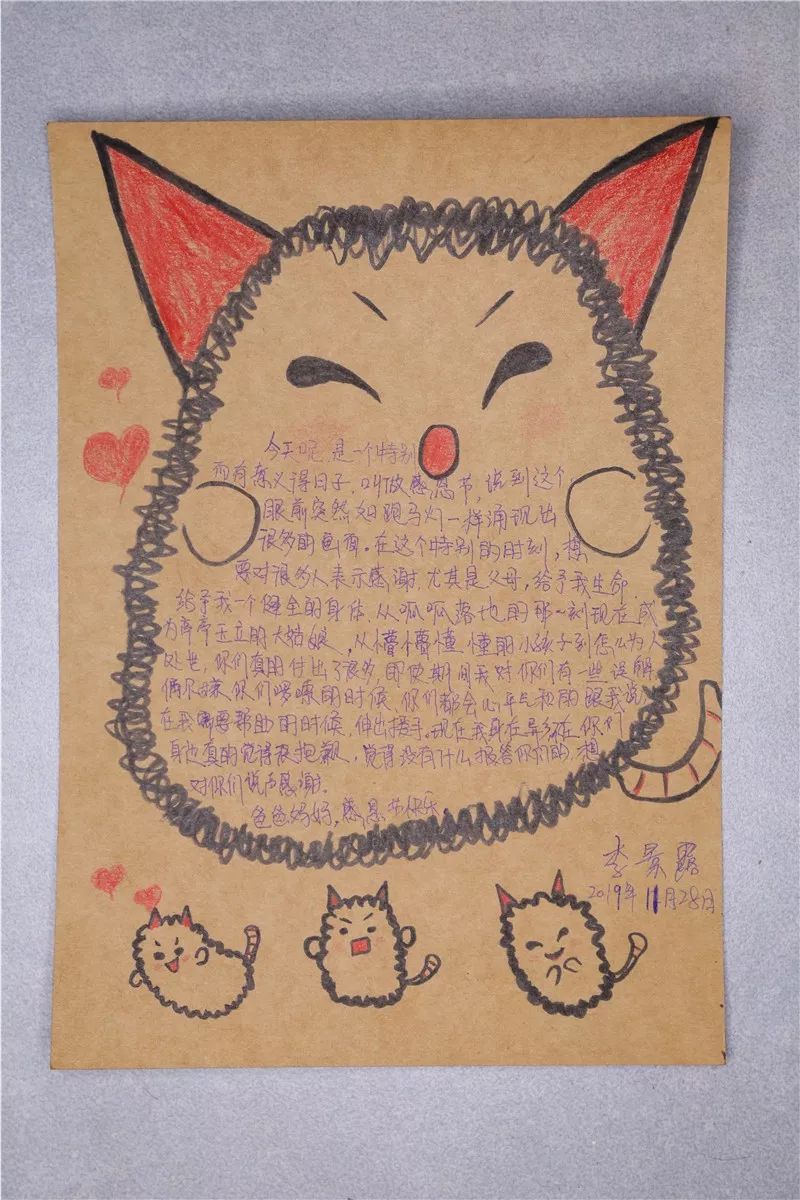 今天呢,是一个特别
而有意义得日子,叫做感恩节,说到这个
眼前突然如跑马灯一样涌现出
很多的画面。在这个特别的时刻,想
要对很多人表示感谢,尤其是父母,给予我生命
给予我一个健全的身体,从呱呱落地的那一刻现在成
为亭亭玉立的大姑娘,从懵懵懂懂的小孩子到怎么为人
处世,你们真的付出了很多,即使期间我对你们有一些误解
你们啰嗦的时候,你们都会心平气和的跟我说
在我需要帮助的时候,伸出援手。现在我身在异乡在你们
身边真的觉得很抱歉,觉得没有什么报答你们的,想
对你们说声感谢。
爸爸妈妈,感恩节快乐
李景露
2019年11月28日